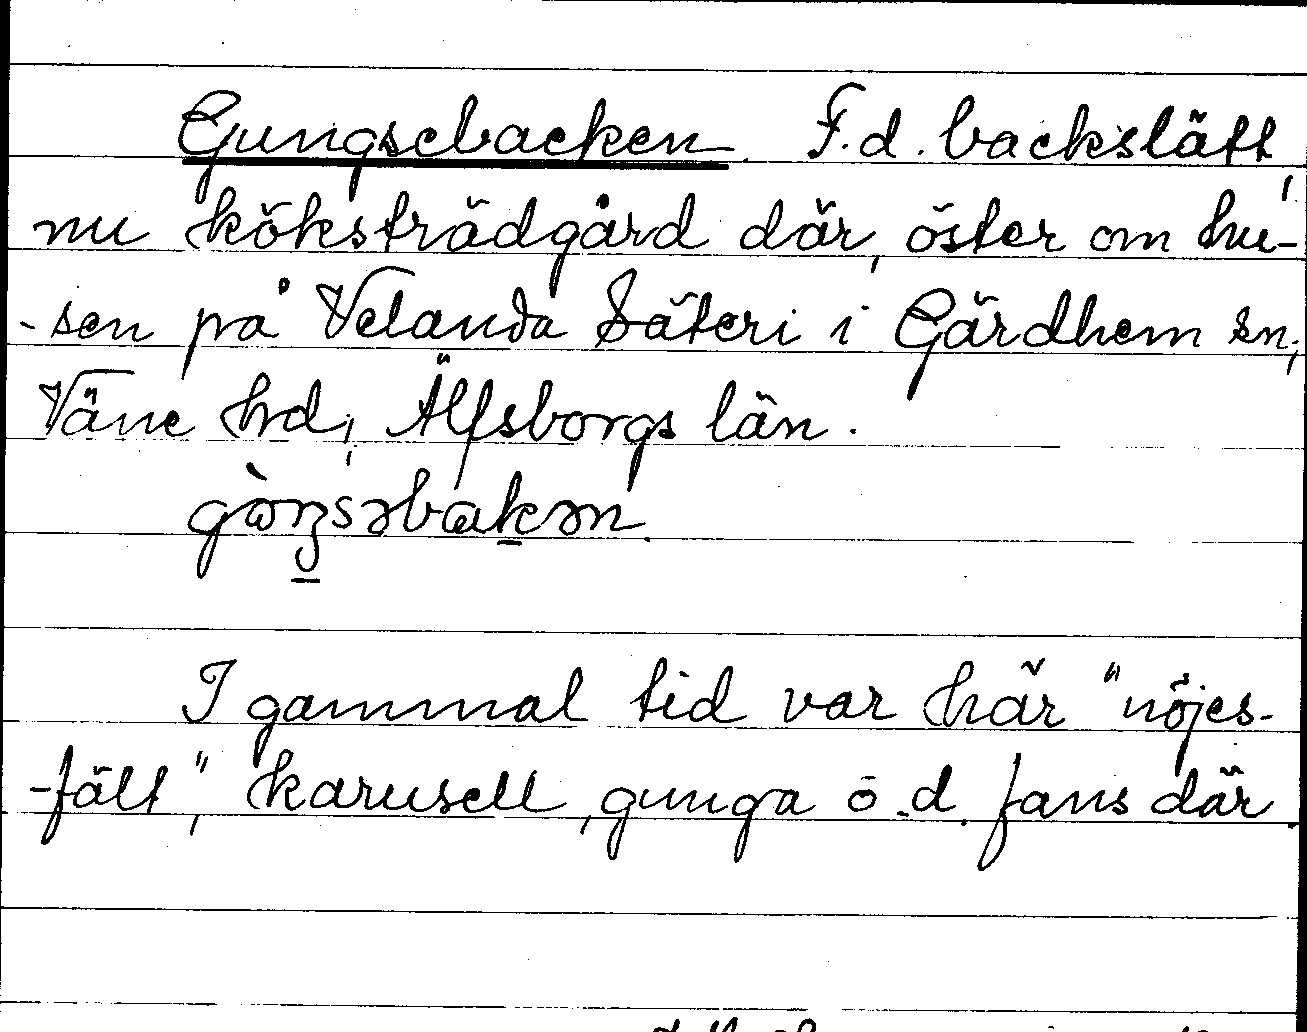 Gungsebacken. F.d. backslätt,
nu köksträdgård där, öster om hu-
-sen på Velanda Säteri i Gärdhem sn,
Väne hrd, Älfsborgs län.
gɷ̀ŋsəbakən.
I gammal tid var här "nöjes-
-fält", karusell, gunga o.d. fans där.